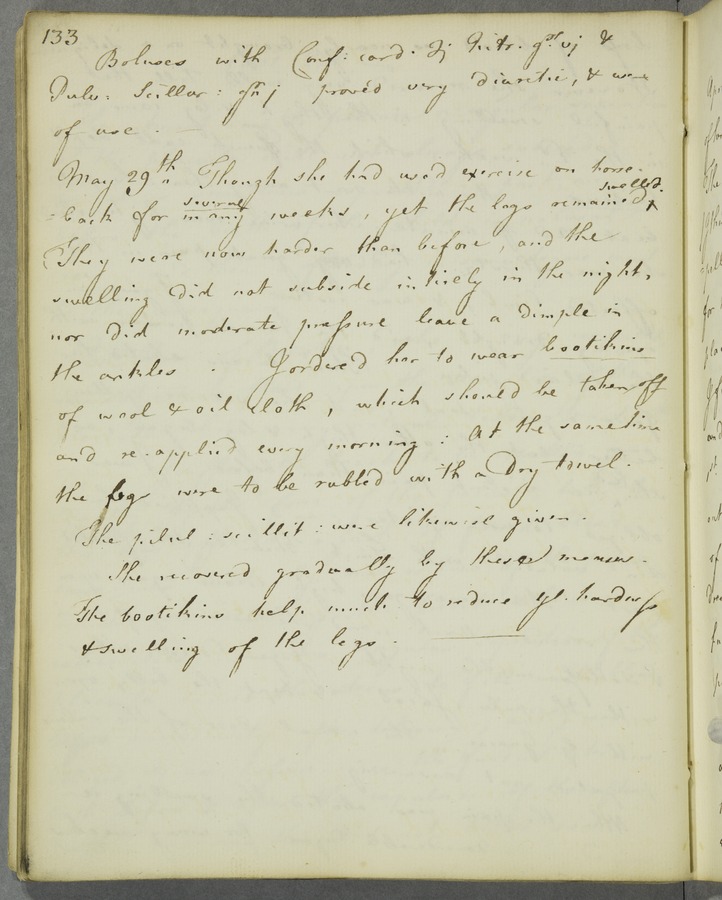 133
Boluses with Conf: card: ʒj Nitr. grs vj &
Pulv: Scillar: gr j proved very diuretic, & were
of use. —
May 29th. Though she had used exercise on horse-
=back for several many weeks, yet the legs remained swelled.
They were now harder than before, and the
swelling did not subside intirely in the night,
nor did moderate pressure leave a dimple in
the ankles. I ordered her to wear bootikins
of wool & oil cloth, which should be taken off
and re-applied every morning: At the same time
the legs were to be rubbed with a Dry towel.
The pilul: scillit: were likewise given.
She recovered gradually by these means.
The bootikins help much to reduce ye. hardness
& swelling of the legs. —